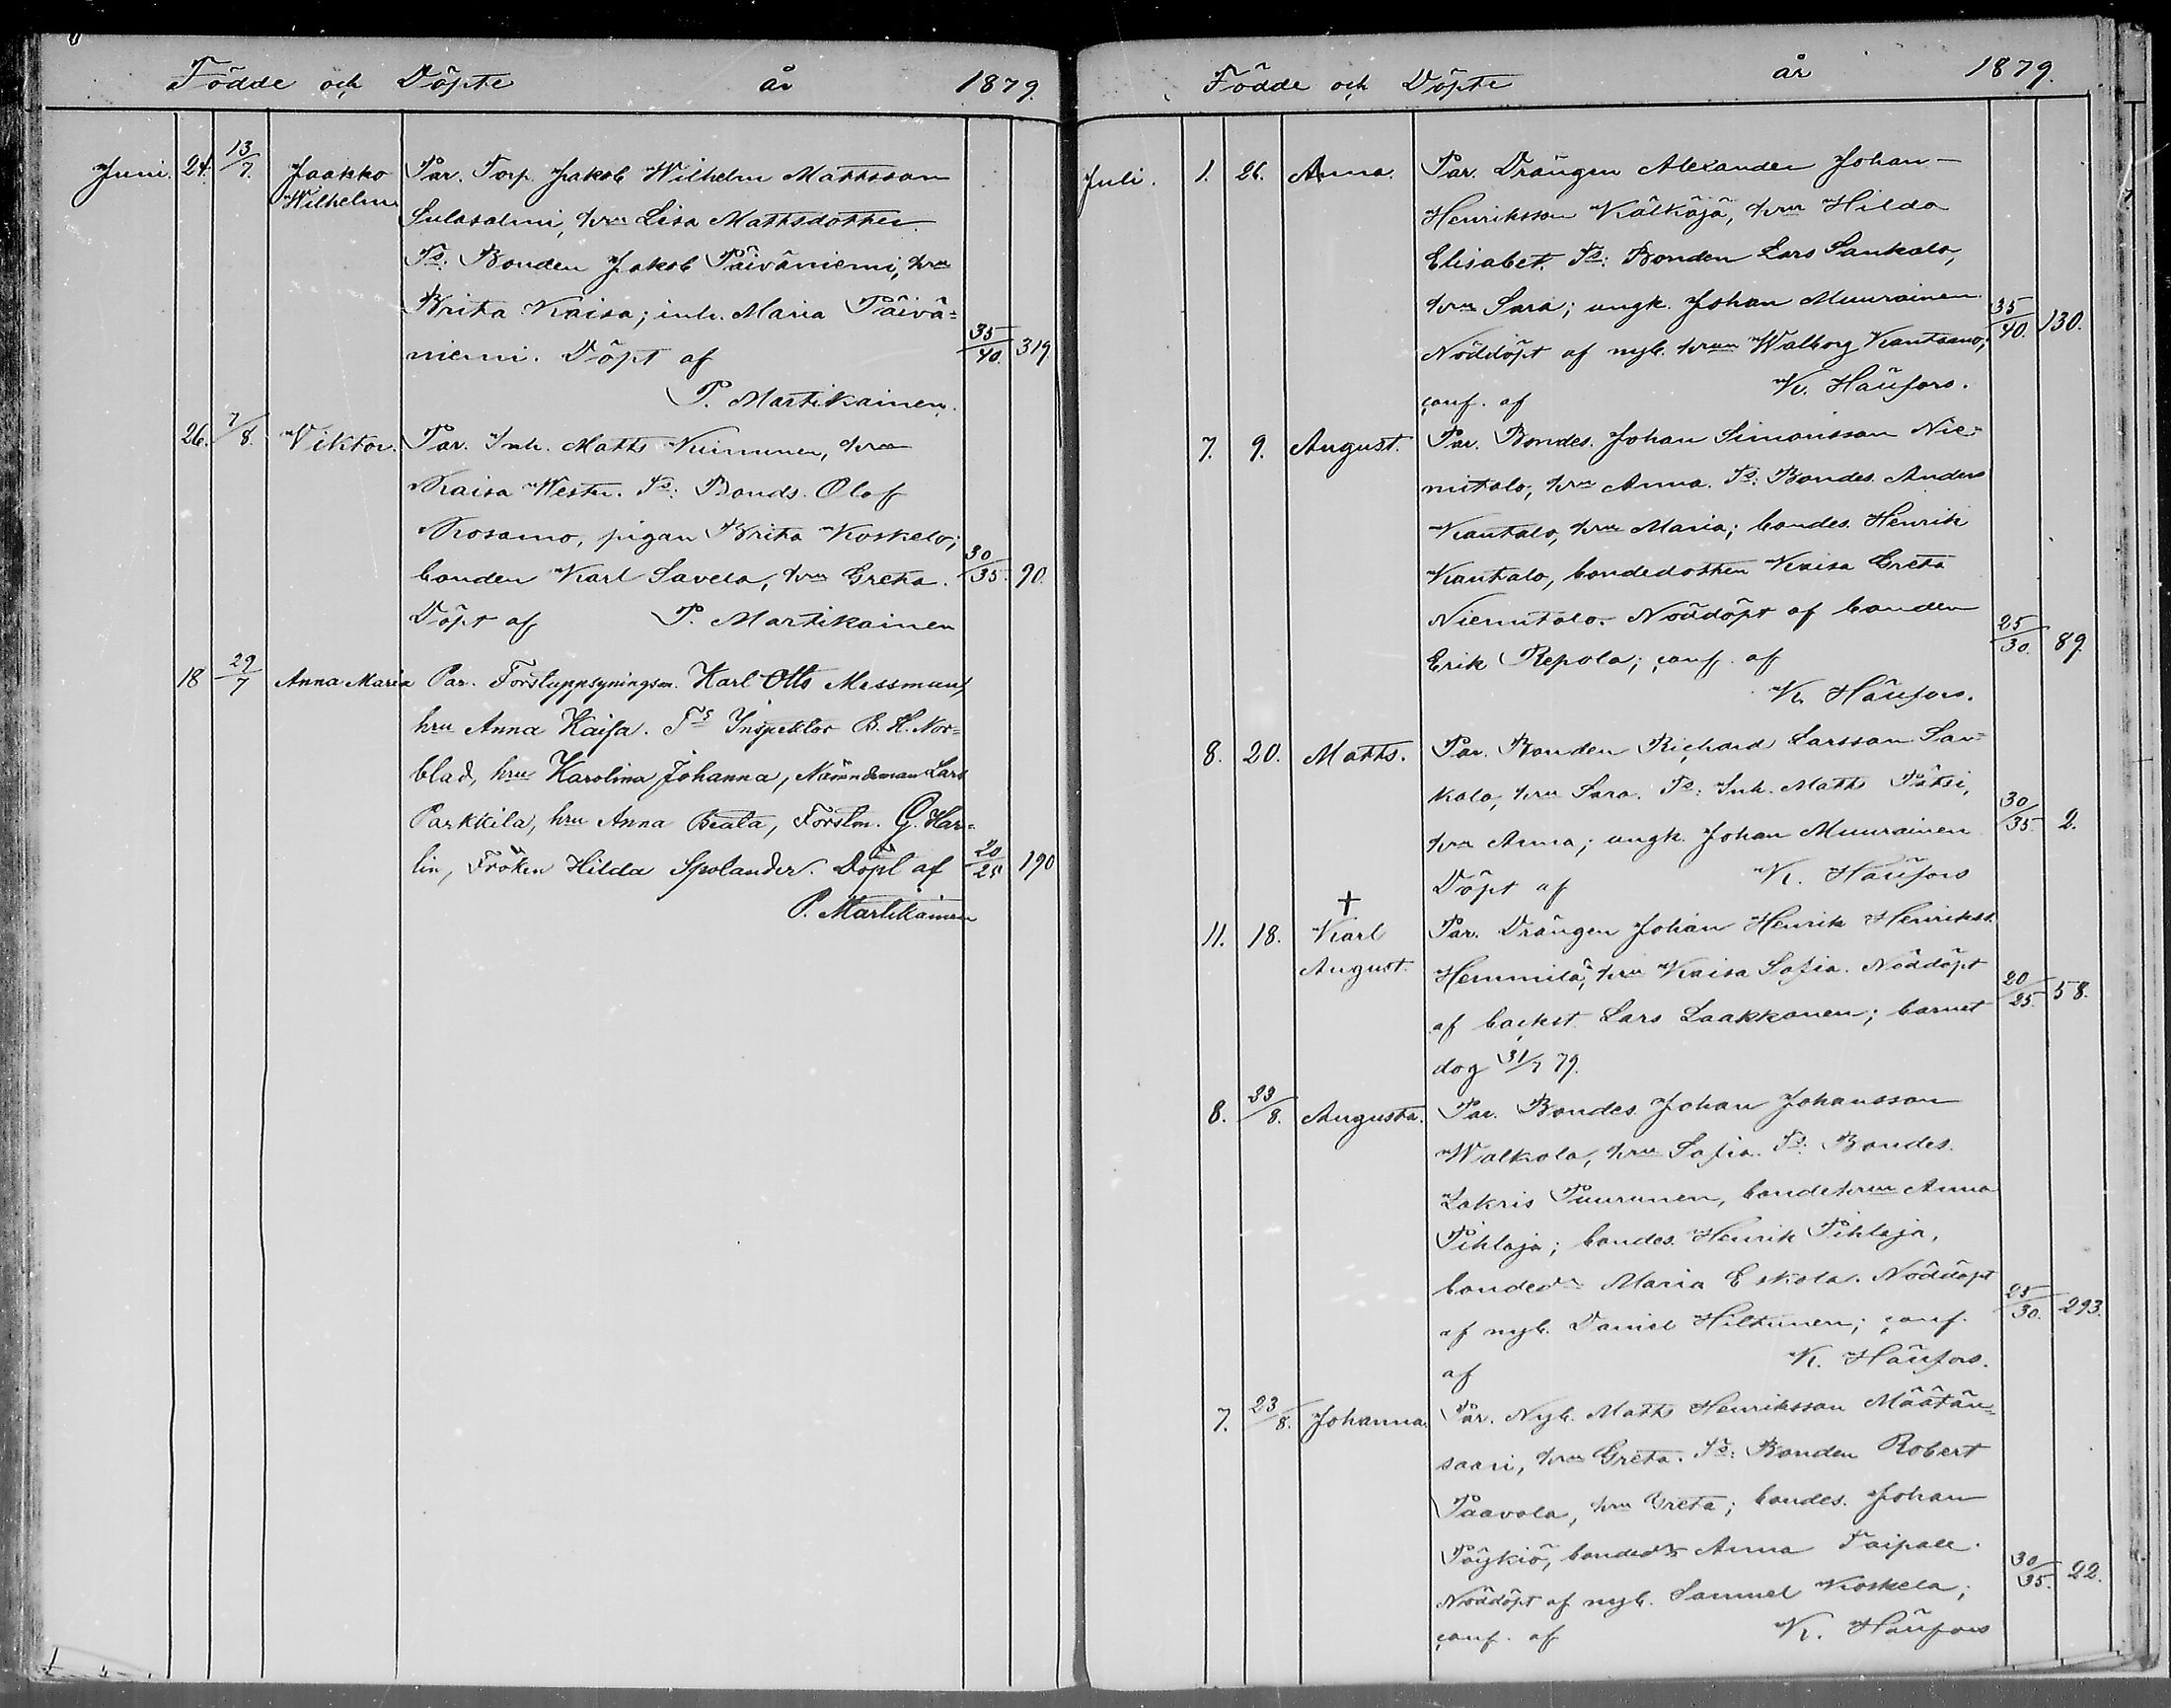 Födde och Döpte år 1879.
Juni. 24. 13/7. Jaakko Wilhelm
Par. Torp. Jakob Wilhelm Mattsson
Sulasalmi, hru Lisa Mattsdotter.
Ts: Bonden Jakob Päiväniemi, hru
Brita Kaisa; inh. Maria Päivä=
niemi. Döpt af 35/40. 319
P. Martikainen.
26. 7/8. Viktor. Par. Inh. Matts Kinnunen, hru
Kaisa Wester. Ts: Bonds. Olof
Kosamo, pigan Brita Koskelo;
bonden Karl Savela, hru Greta. 30/35. 90.
Döpt af P. Martikainen
18 29/7 Anna Maria Par. Forstuppsyningsm. Karl Otto Messman,
hru Anna Kaisa. Ts Inspektor B. H. Nor=
blad, hru Karolina Johanna, Nämndeman Lars
Parkkila, hru Anna Beata, Förstm. G. Har=
lin, Fröken Hilda Spolander. Döpt af 20/25 190
P. Martikainen
Födde och Döpte år 1879.
Juli. 1. 26. Anna. Par. Drängen Alexander Johan-
Henriksson Kälkäjä, hru Hilda
Elisabet. Ts: Bonden Lars Sankala,
hru Sara; ungk. Johan Muurainen
Nöddöpt af nyb. hrun Walborg Kantsamo; 35/40. 130.
conf. af K. Häufors.
7. 9. August. Par. Bondes. Johan Simonsson Nie=
mitalo, hru Anna. Ts: Bondes. Anders
Kantalo, hru Maria; bondes. Henrik
Kantalo, bondedotter Kaisa Greta
Niemitalo. Nöddöpt af bonden
Erik Repola; conf. af 25/30. 89
K. Häufors.
8. 20. Matts. Par. Bonden Richard Larsson San=
kala, hru Sara. Ts: Inh. Matts Pätsi,
hru Anna; ungk. Johan Muurainen 30/35. 2.
Döpt af K. Häufors
11. 18. † Karl August. Par. Drängen Johan Henrik Henrikss.
Hemmilä, hru Kaisa Sofia. Nöddöpt
af backst. Lars Laakkonen; barnet 20/25. 58.
dog 31/7 79.
8. 23/8. Augusta. Par. Bondes Johan Johansson
Walkola, hru Sofia. Ts: Bondes.
Zakris Puurunen, bondehru Anna
Pihlaja; bondes. Henrik Pihlaja,
bondedr Maria Eskola. Nöddöpt
af nyb. Daniel Hiltunen; conf. 25/30. 293.
af K. Häufors.
7. 23/8. Johanna. Par. Nyb. Matts Henriksson Määtän=
saari, hru Greta. Ts: Bonden Robert
Paavola, hru Greta; bondes. Johan
Pöykiö, bondedr Anna Taipale.
Nöddöpt af nyb. Samuel Koskela; 30/35. 22.
conf. af K. Häufors